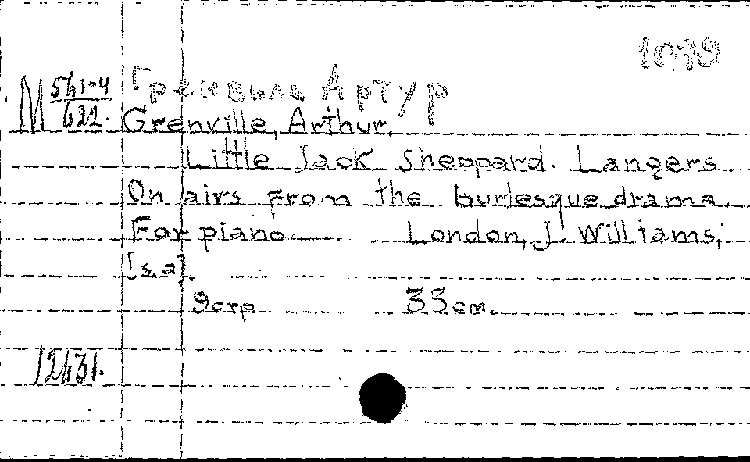 1079
М 561-4/622. Гренвиль Артур
Grenville, Arthur.
Little Jack Sheppard. Lanqers
On airs from the burlesque drama
For piano London, J. Williams,
[s.a].
9стр 33см.
12631.